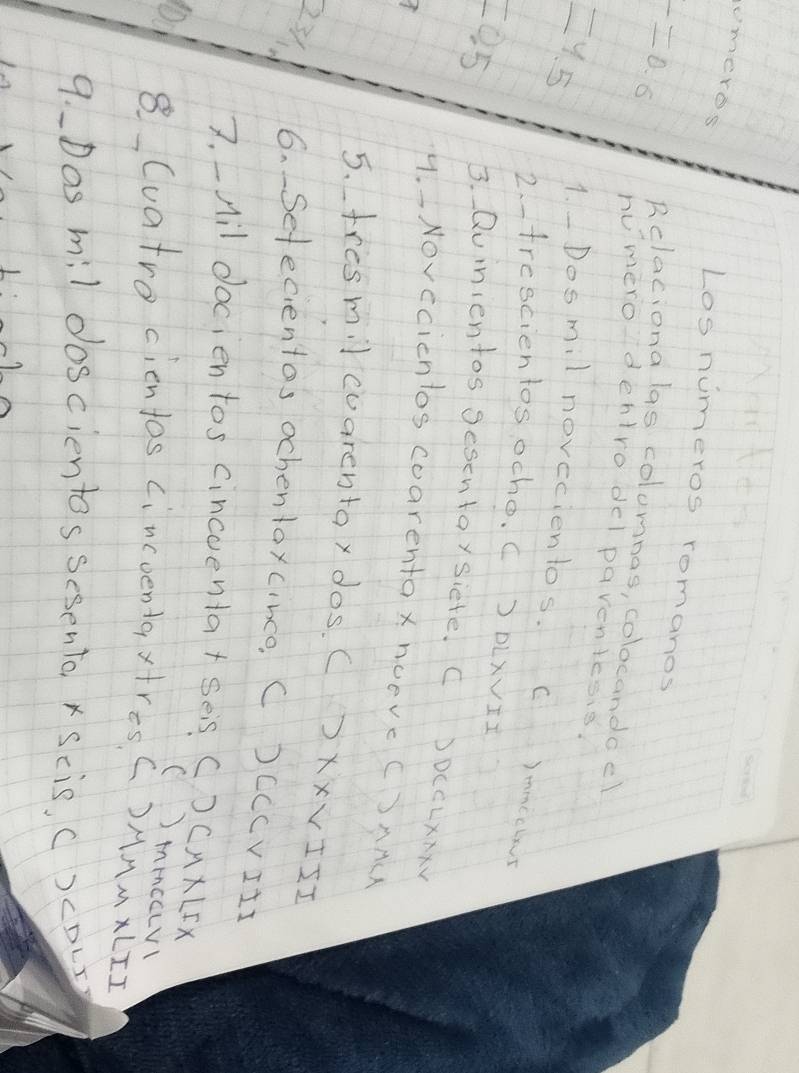 Los números romanos
Relaciona las columnas, colocando el
número dentro del parentesis.
1.- Dos mil novecientos. ( )
2.- trescientos ocho. ( ) DLXVII
3.- Quinientos sesenta y siete. ( ) DCCLXXXV
4.- Novecientos cuarenta y nueve ( )
5.- tres mil cuarenta y dos. ( ) XXVIII
6.- Setecientos ochenta y cinco. ( ) CCCVIII
7.- Mil docientos cincuenta y seis. ( ) CMXLIX
( ) MMCCLVI
8.- Cuatro cientos cincuenta y tres. ( ) MMMXLII
9.- Dos mil doscientos sesenta y seis. ( ) CDLII
umeros
= 0.6
= 4.5
= 0.5